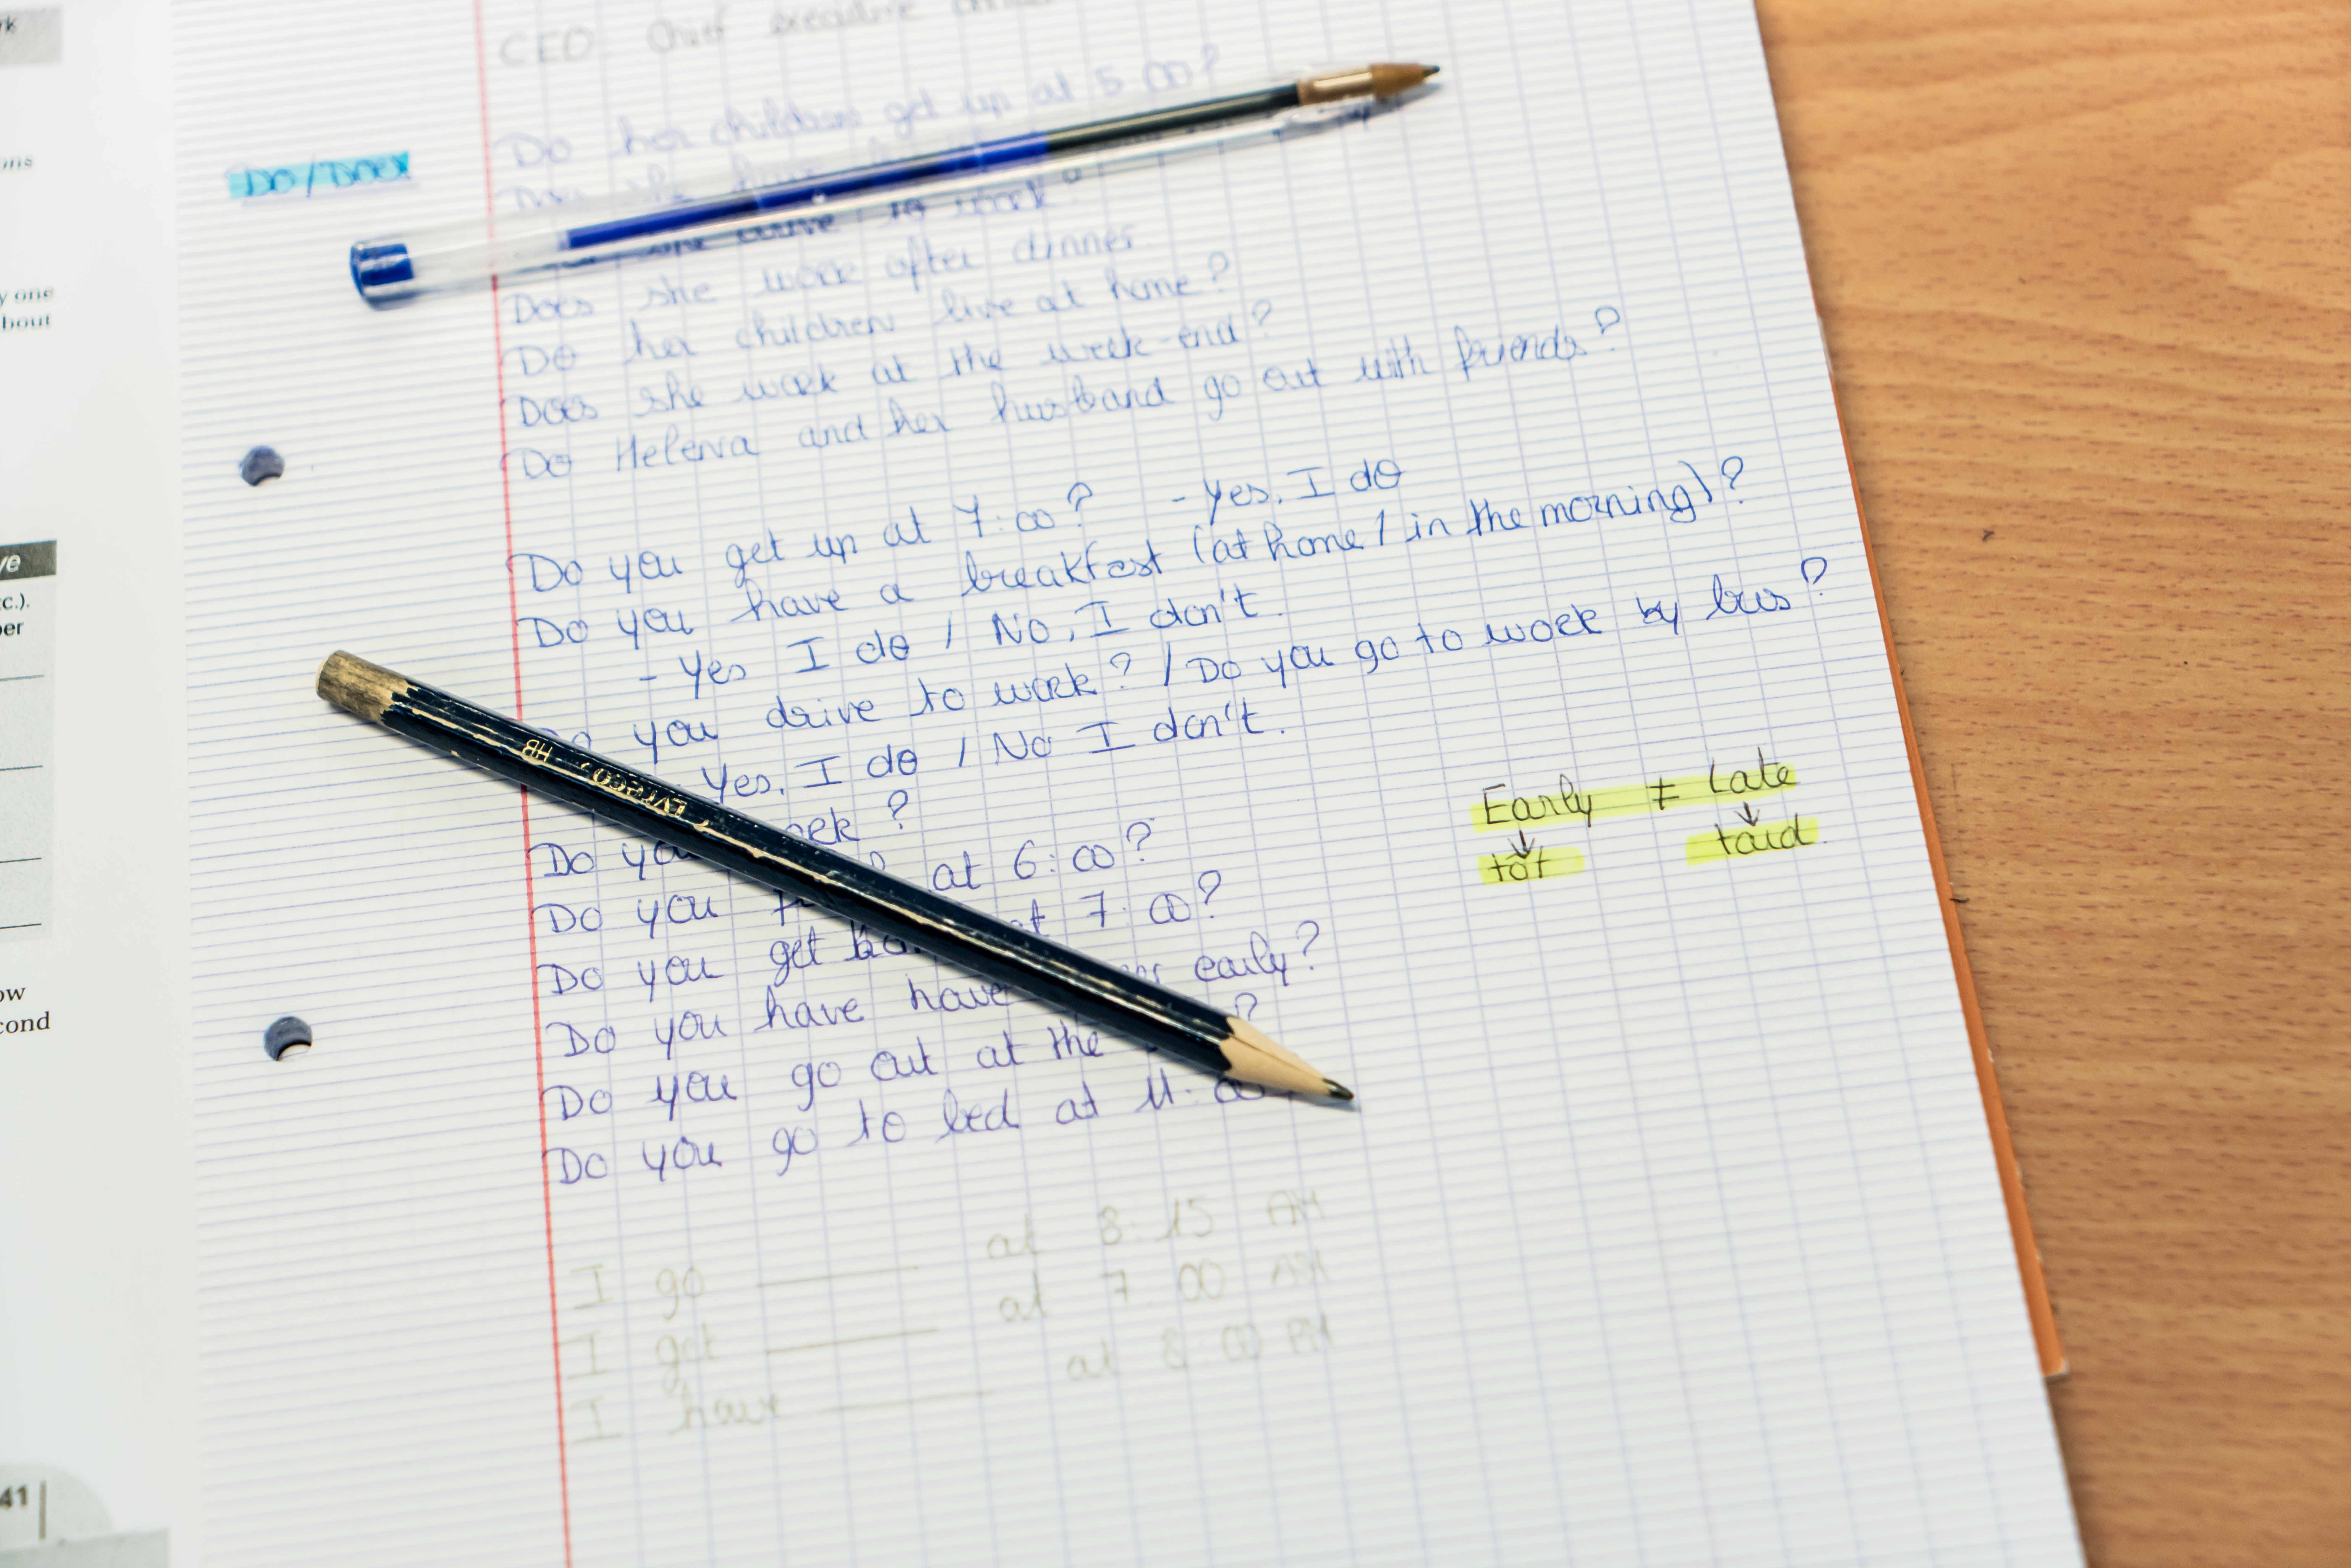 rk
ons
y one
bout
ve
c.).
per
ow
cond
41
CEO: Chief executive
DO/DOES
Do her children get up at 5:00?
she have
she drive to work?
Does she work after dinner
Do her children live at home?
Does she work at the week-end?
Do Helena and her husband go out with friends?
Do you get up at 7:00? - Yes, I do
Do you have a breakfast (at home / in the morning)?
- Yes I do / No, I don't.
you drive to work? / Do you go to work by bus?
Yes, I do / No I don't.
Do you ?
Do you at 6:00?
Do you get at 7:00?
Do you have have early?
Do you go out at the ?
Do you go to bed at 11:00
Early ≠ Late
↓ ↓
tôt tard
HB
I go ______ at 8:15 AM
I get ______ at 7:00 AM
I have ______ at 8:00 PM